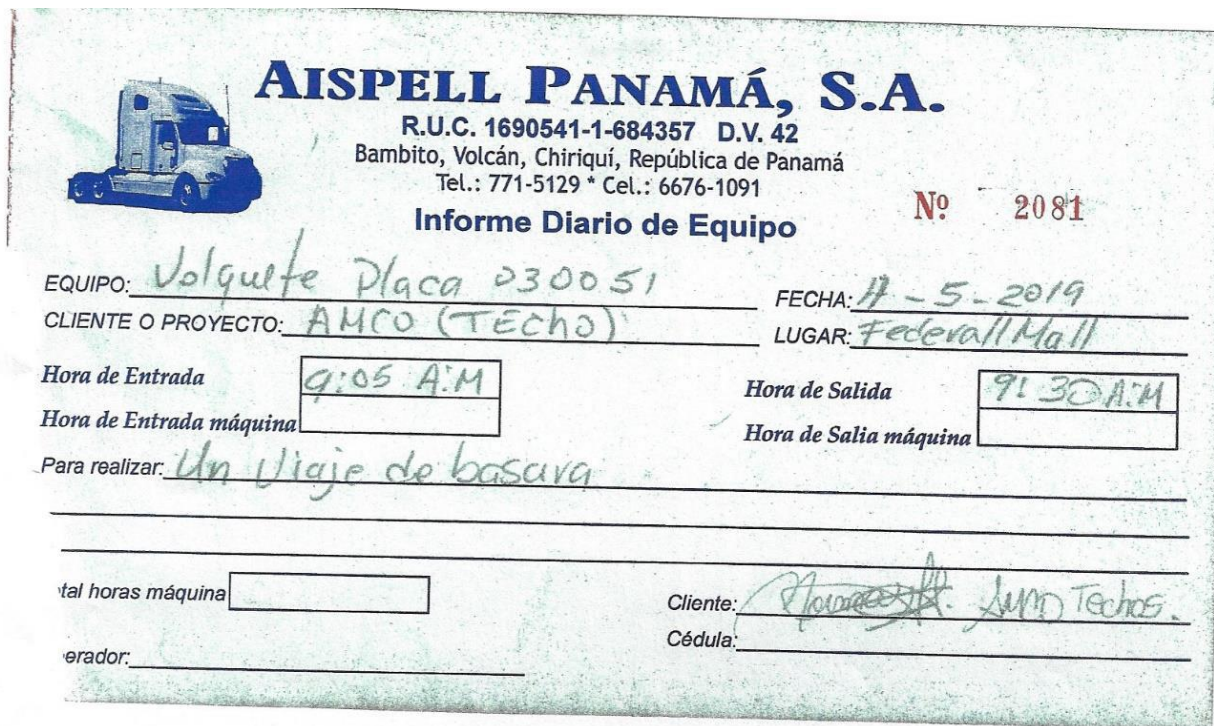 AISPELL PANAMÁ, S.A.
R.U.C. 1690541-1-684357 D.V. 42
Bambito, Volcán, Chiriquí, República de Panamá
Tel.: 771-5129 * Cel.: 6676-1091
Informe Diario de Equipo
Nº 2081
EQUIPO: Volquete Placa 030051
FECHA: -5-2019
CLIENTE O PROYECTO: AMCO (TEChO)
LUGAR: Federall Mall
Hora de Entrada 9:05 A.M
Hora de Salida 9:30 A.M
Hora de Entrada máquina
Hora de Salia máquina
Para realizar: Un Viaje de basura
tal horas máquina
Cliente: Techos.
Cédula:
erador: